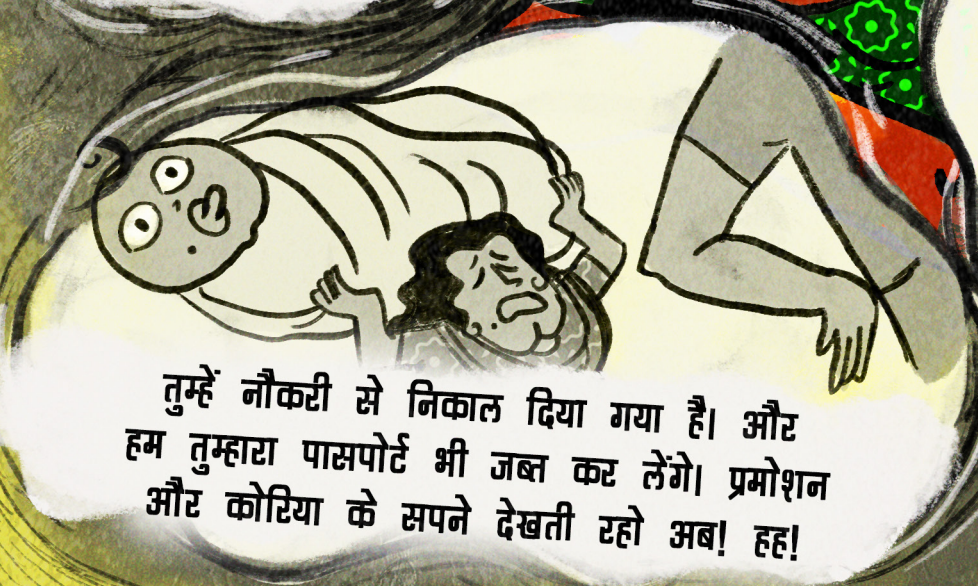 तुम्हें नौकरी से निकाल दिया गया है। और
हम तुम्हारा पासपोर्ट भी जब्त कर लेंगे। प्रमोशन
और कोरिया के सपने देखती रहो अब! हह!